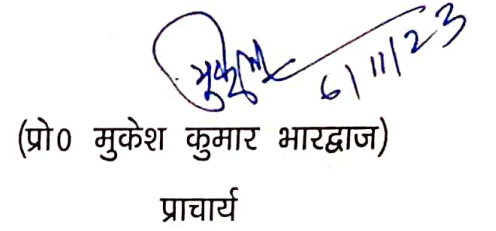 मुकेश
6/11/23
(प्रो0 मुकेश कुमार भारद्वाज)
प्राचार्य